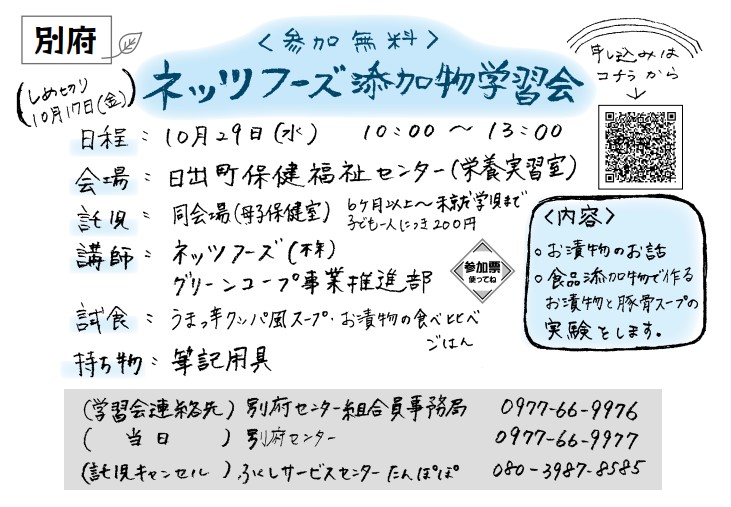 別府
〈参加無料〉
ネッツフーズ添加物学習会
(しめ切り
10月17日(金))
申し込みは
コチラから
日程：10月29日(水) 10:00～13:00
会場：日出町保健福祉センター(栄養実習室)
託児：同会場(母子保健室) 6ヶ月以上～未就学児まで
子ども一人につき200円
講師：ネッツフーズ(株)
グリーンコープ事業推進部
参加票
使ってね
試食：うまっ辛クッパ風スープ・お漬物の食べ比べ
ごはん
持ち物：筆記用具
〈内容〉
○お漬物のお話
○食品添加物で作る
お漬物と豚骨スープの
実験をします。
(学習会連絡先)別府センター組合員事務局 0977-66-9976
(当日)別府センター 0977-66-9977
(託児キャンセル)ふくしサービスセンターたんぽぽ 080-3987-8585